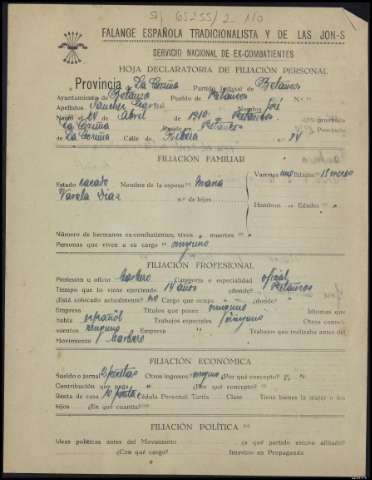 65255/2 110
FALANGE ESPAÑOLA TRADICIONALISTA Y DE LAS JON-S
SERVICIO NACIONAL DE EX-COMBATIENTES
HOJA DECLARATORIA DE FILIACIÓN PERSONAL
Provincia de La Coruña Partido Judicial de Betanzos
Ayuntamiento de Betanzos Pueblo de Betanzos N.º
Apellidos Sanchez Nombre José
Nació el 24 de Abril de 1910 Betanzos provincia
La Coruña Betanzos Provincia
de La Coruña Calle de 24
FILIACIÓN FAMILIAR
Estado casado Nombre de la esposa Maria Varones uno Edades 18 meses
Varela Diaz N.º de hijos
Hembras Edades
Número de hermanos ex-combatientes, vivos muertos
Personas que viven a su cargo ninguno
FILIACIÓN PROFESIONAL
Profesión u oficio barbero Categoría o especialidad oficial
Tiempo que lo viene ejerciendo 14 años ¿dónde? Betanzos
¿Está colocado actualmente? no Cargo que ocupa ¿dónde?
Empresa Títulos que posee ninguno Idiomas que
habla español Trabajos especiales ninguno Otros conoci-
mientos ninguno Empresa Trabajos que realizaba antes del
Movimiento barbero
FILIACIÓN ECONÓMICA
Sueldo o jornal pesetas Otros ingresos ninguno ¿Por qué concepto?
Contribución que paga ¿Por qué concepto?
Renta de casa 10 pesetas Cédula Personal Tarifa Clase Tiene bienes la mujer o los
hijos ¿En qué cuantía?
FILIACIÓN POLÍTICA
Ideas políticas antes del Movimiento ¿a qué partido estuvo afiliado?
¿Con qué cargo? Intervino en Propaganda